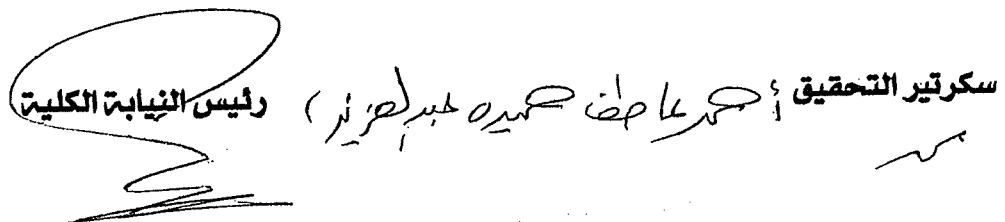 سكرتير التحقيق أحمد عاطف حميده عبدالعزيز رئيس النيابة الكلية